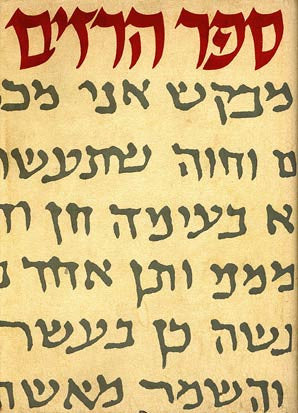 ספר הרזים
מבקש אני מכ
ם וחוה שתעשו
א בעימה חן וח
ממנ ותן אחד
נשה כן בעשר
והשמר מאשה